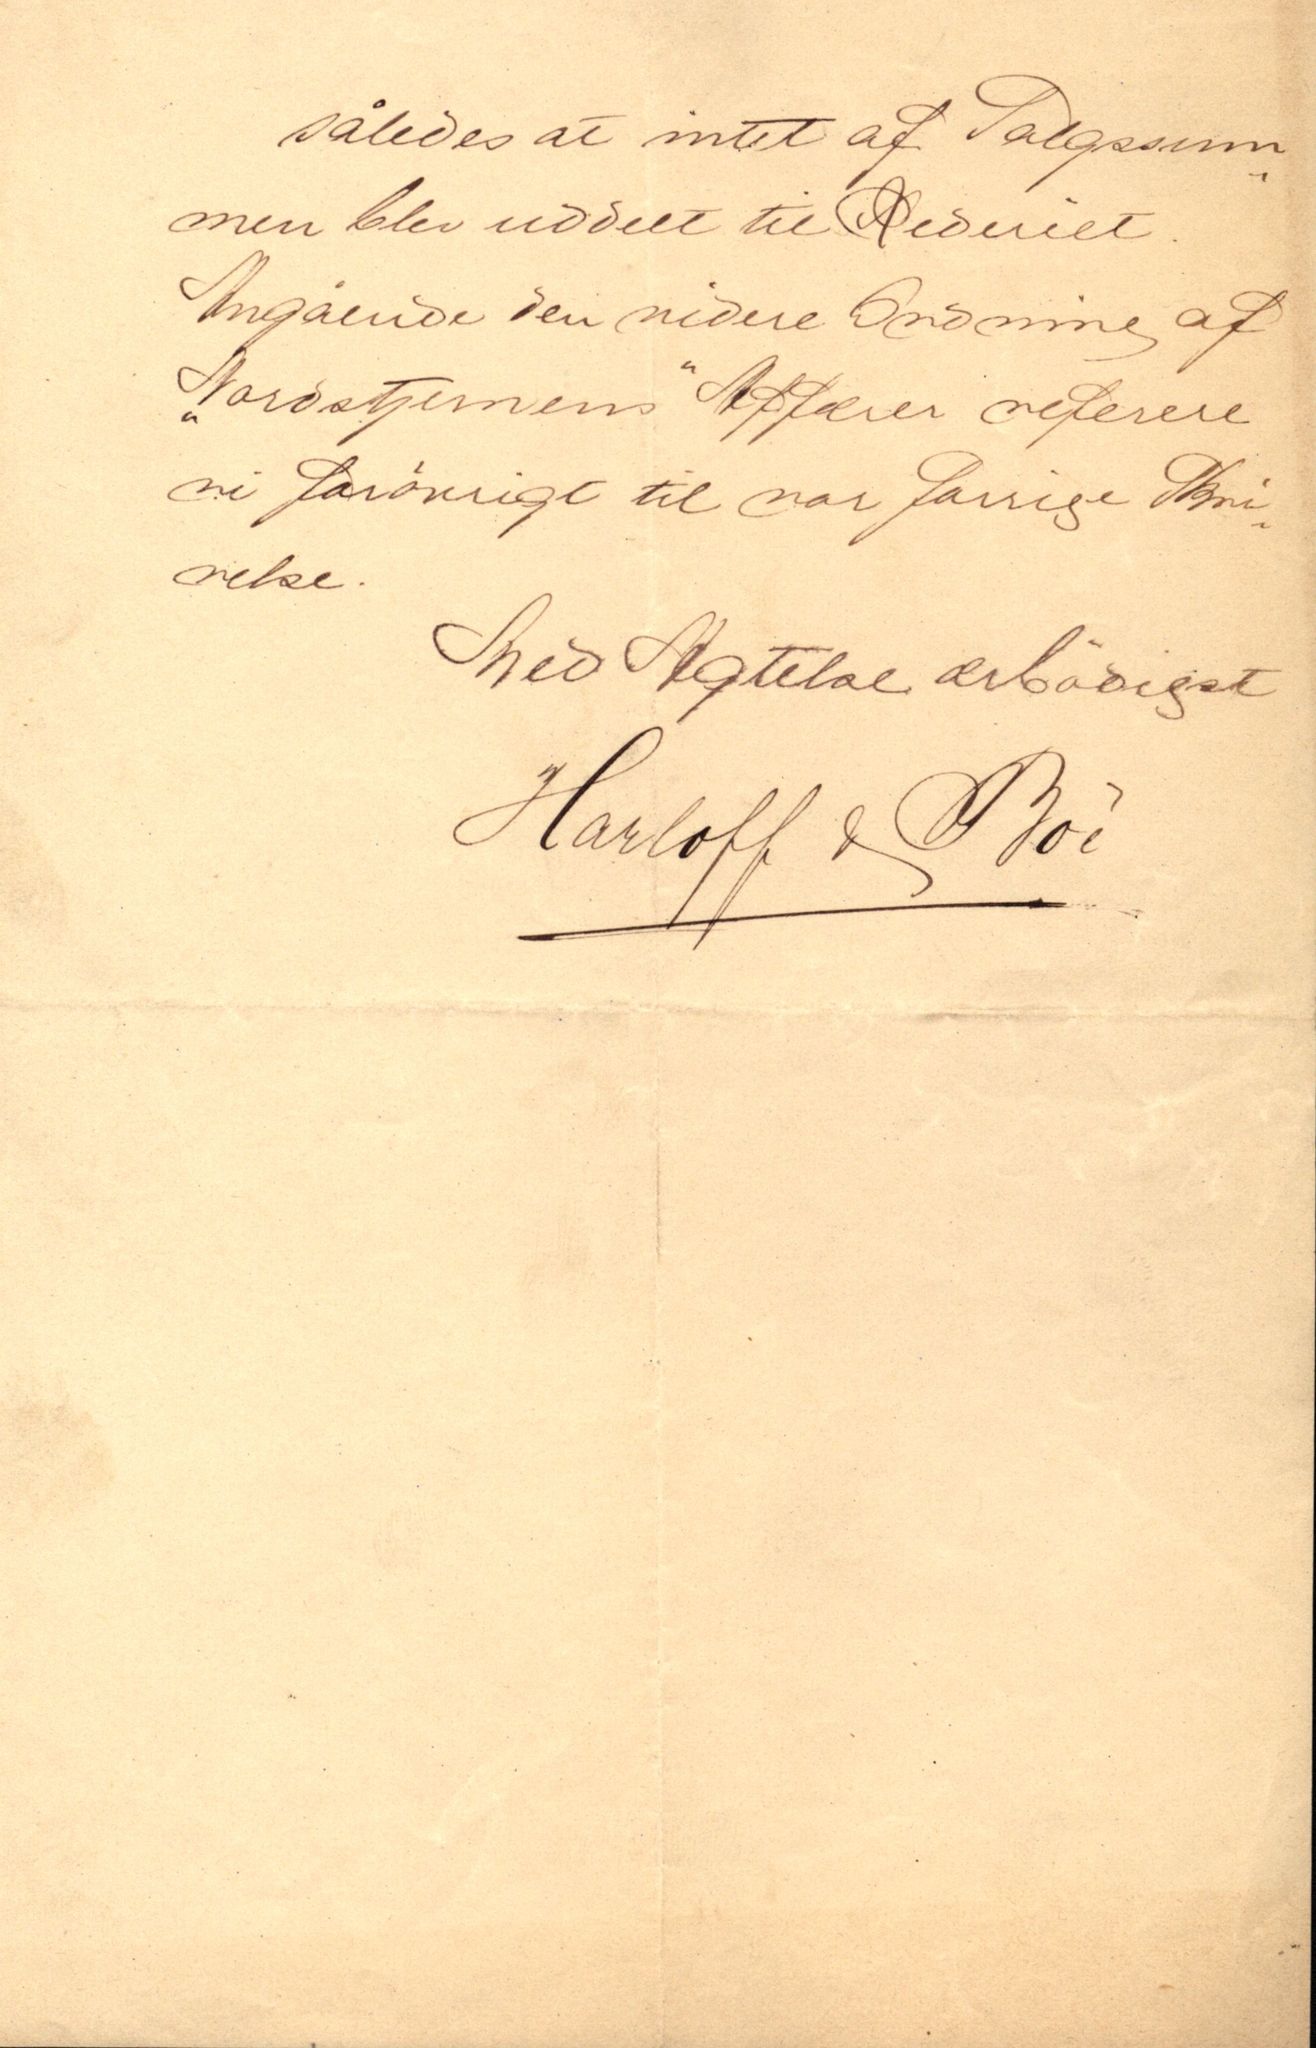 således at intet af Salgssum„
men blev uddelt til Rederiet.
Angående den videre Ordning af
„Nordstjernens" Affærer referere
vi forövrigt til vor forrige Skri„
velse.
Med Agtelse ærbödigst
Harloff & Böe